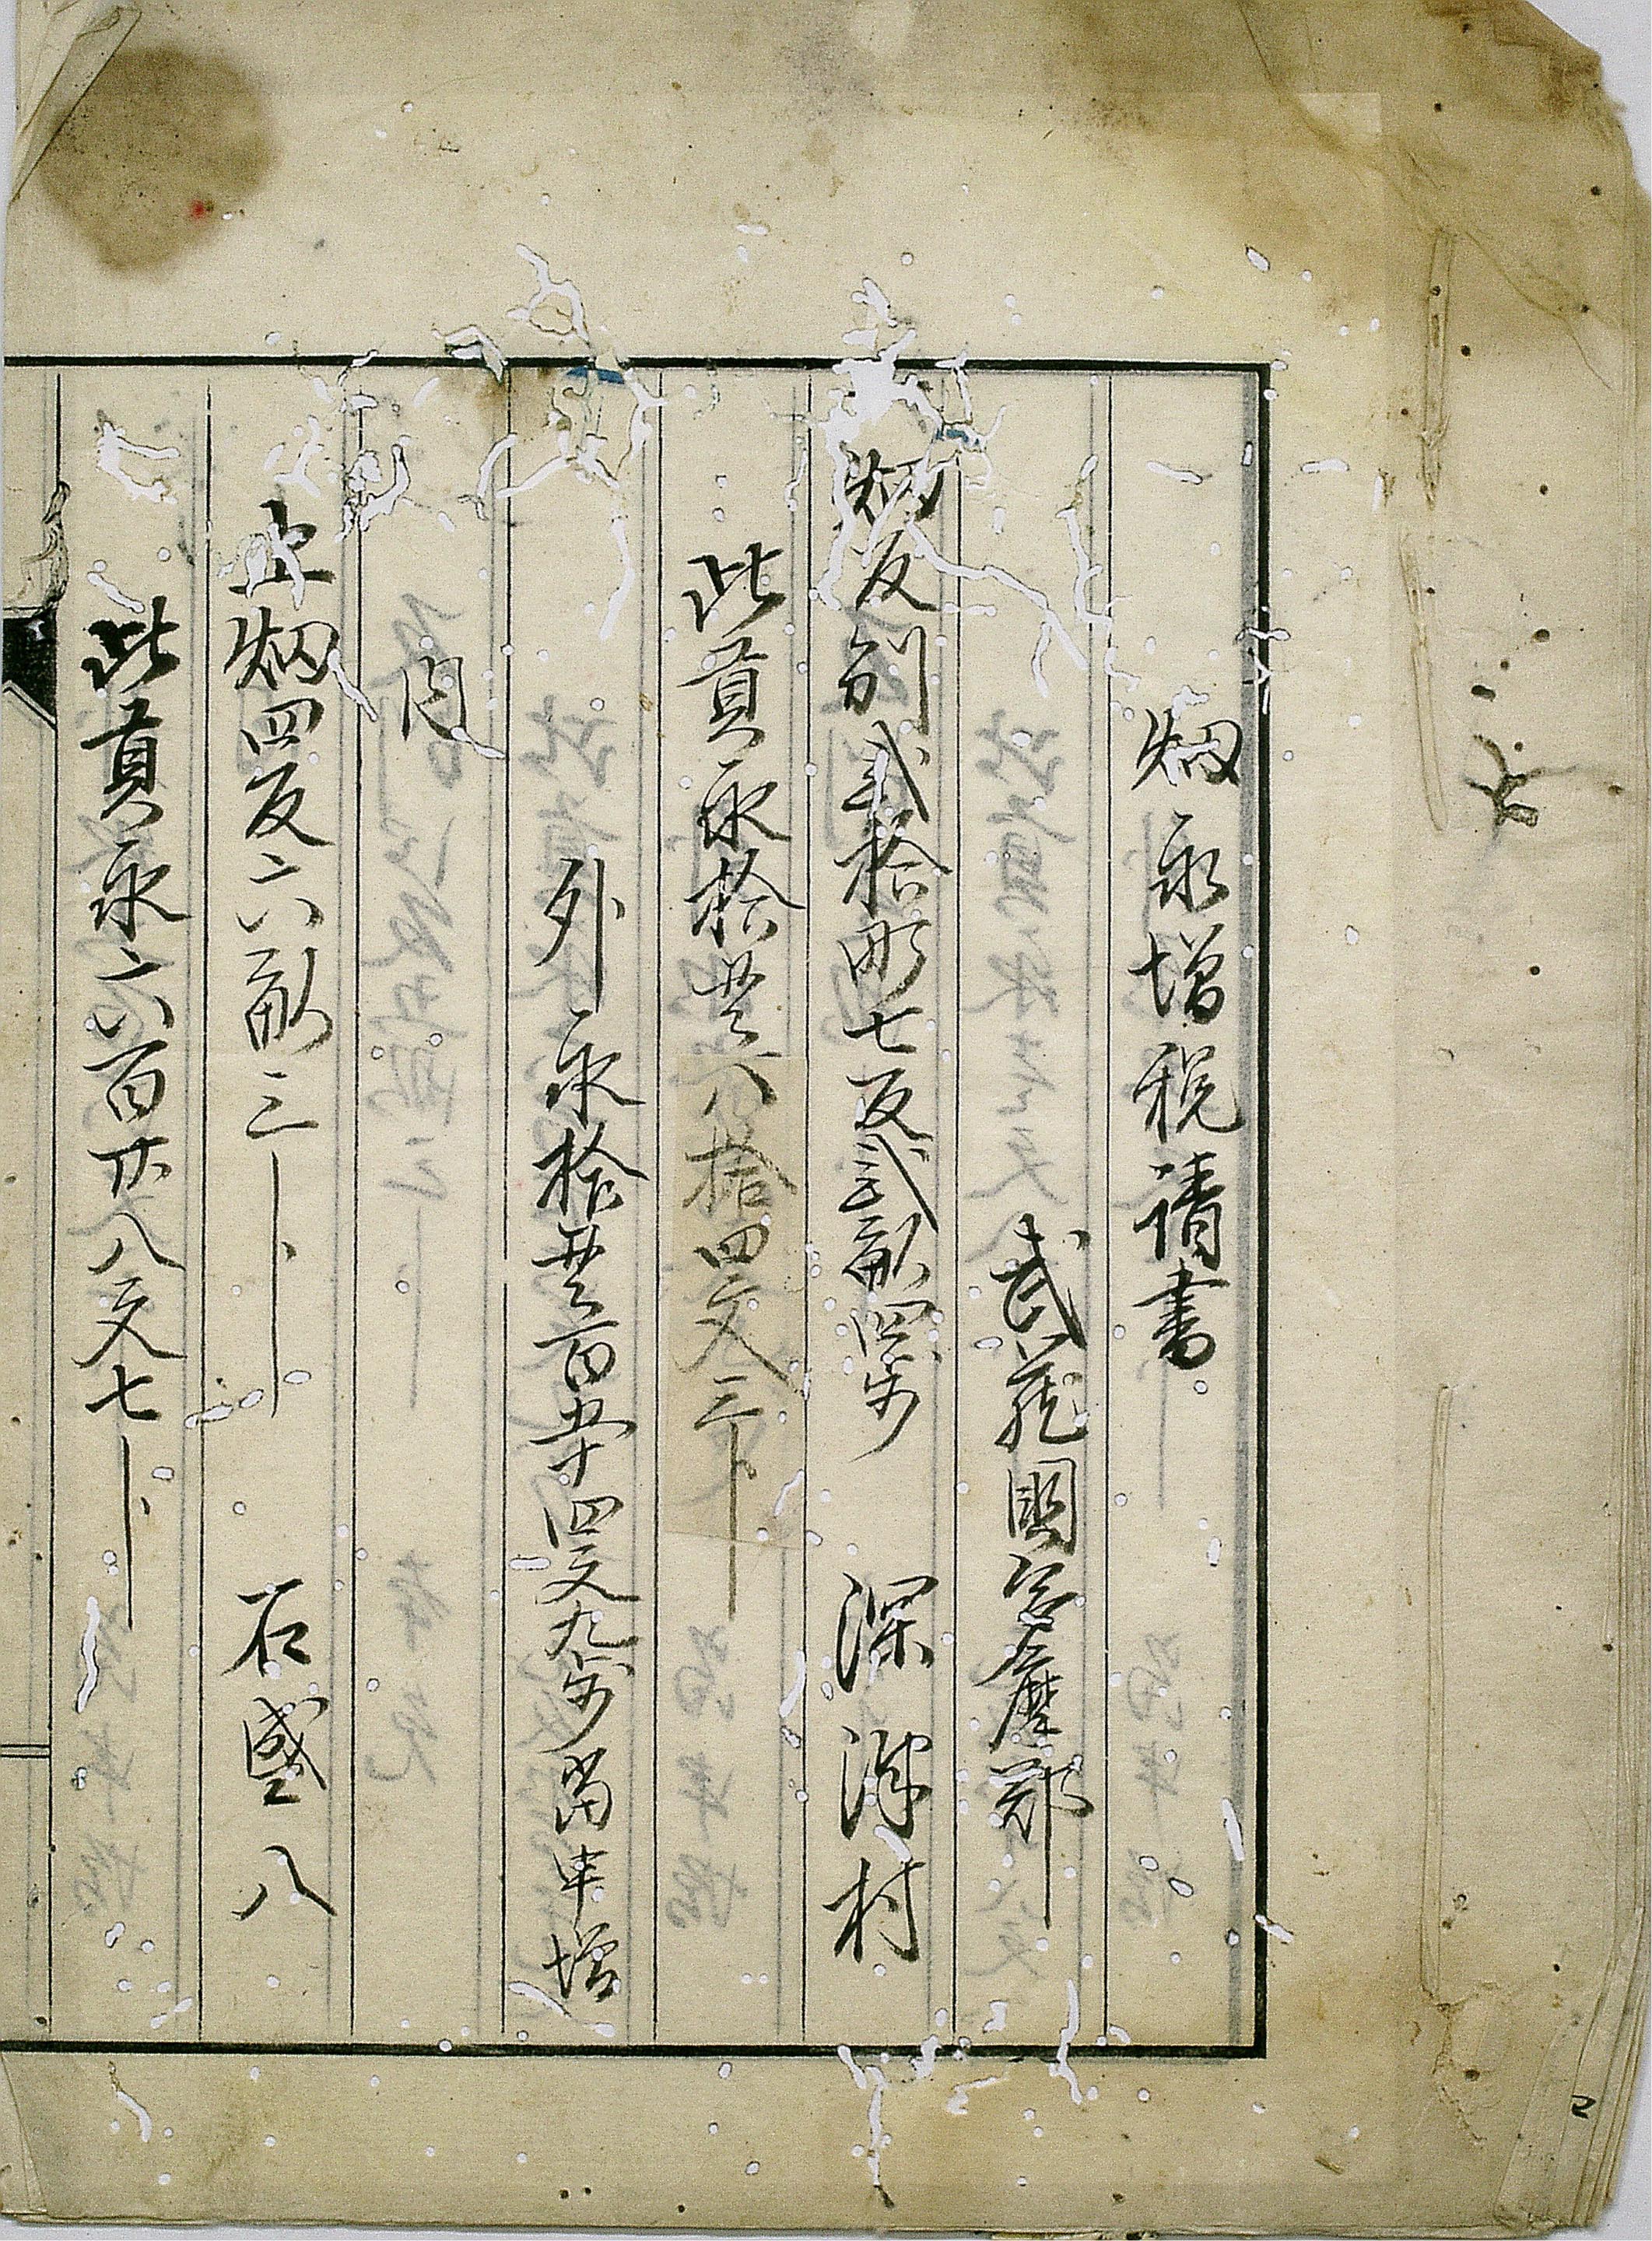 畑永増税請書
武蔵国多摩郡
畑反別弐拾町七反弐畝四歩 深澤村
此貢永拾貫六拾四文三分
外永拾貫百五十四文九分当申増
内
上畑四反六畝三分 石盛八
此貢永六百廿八文七分